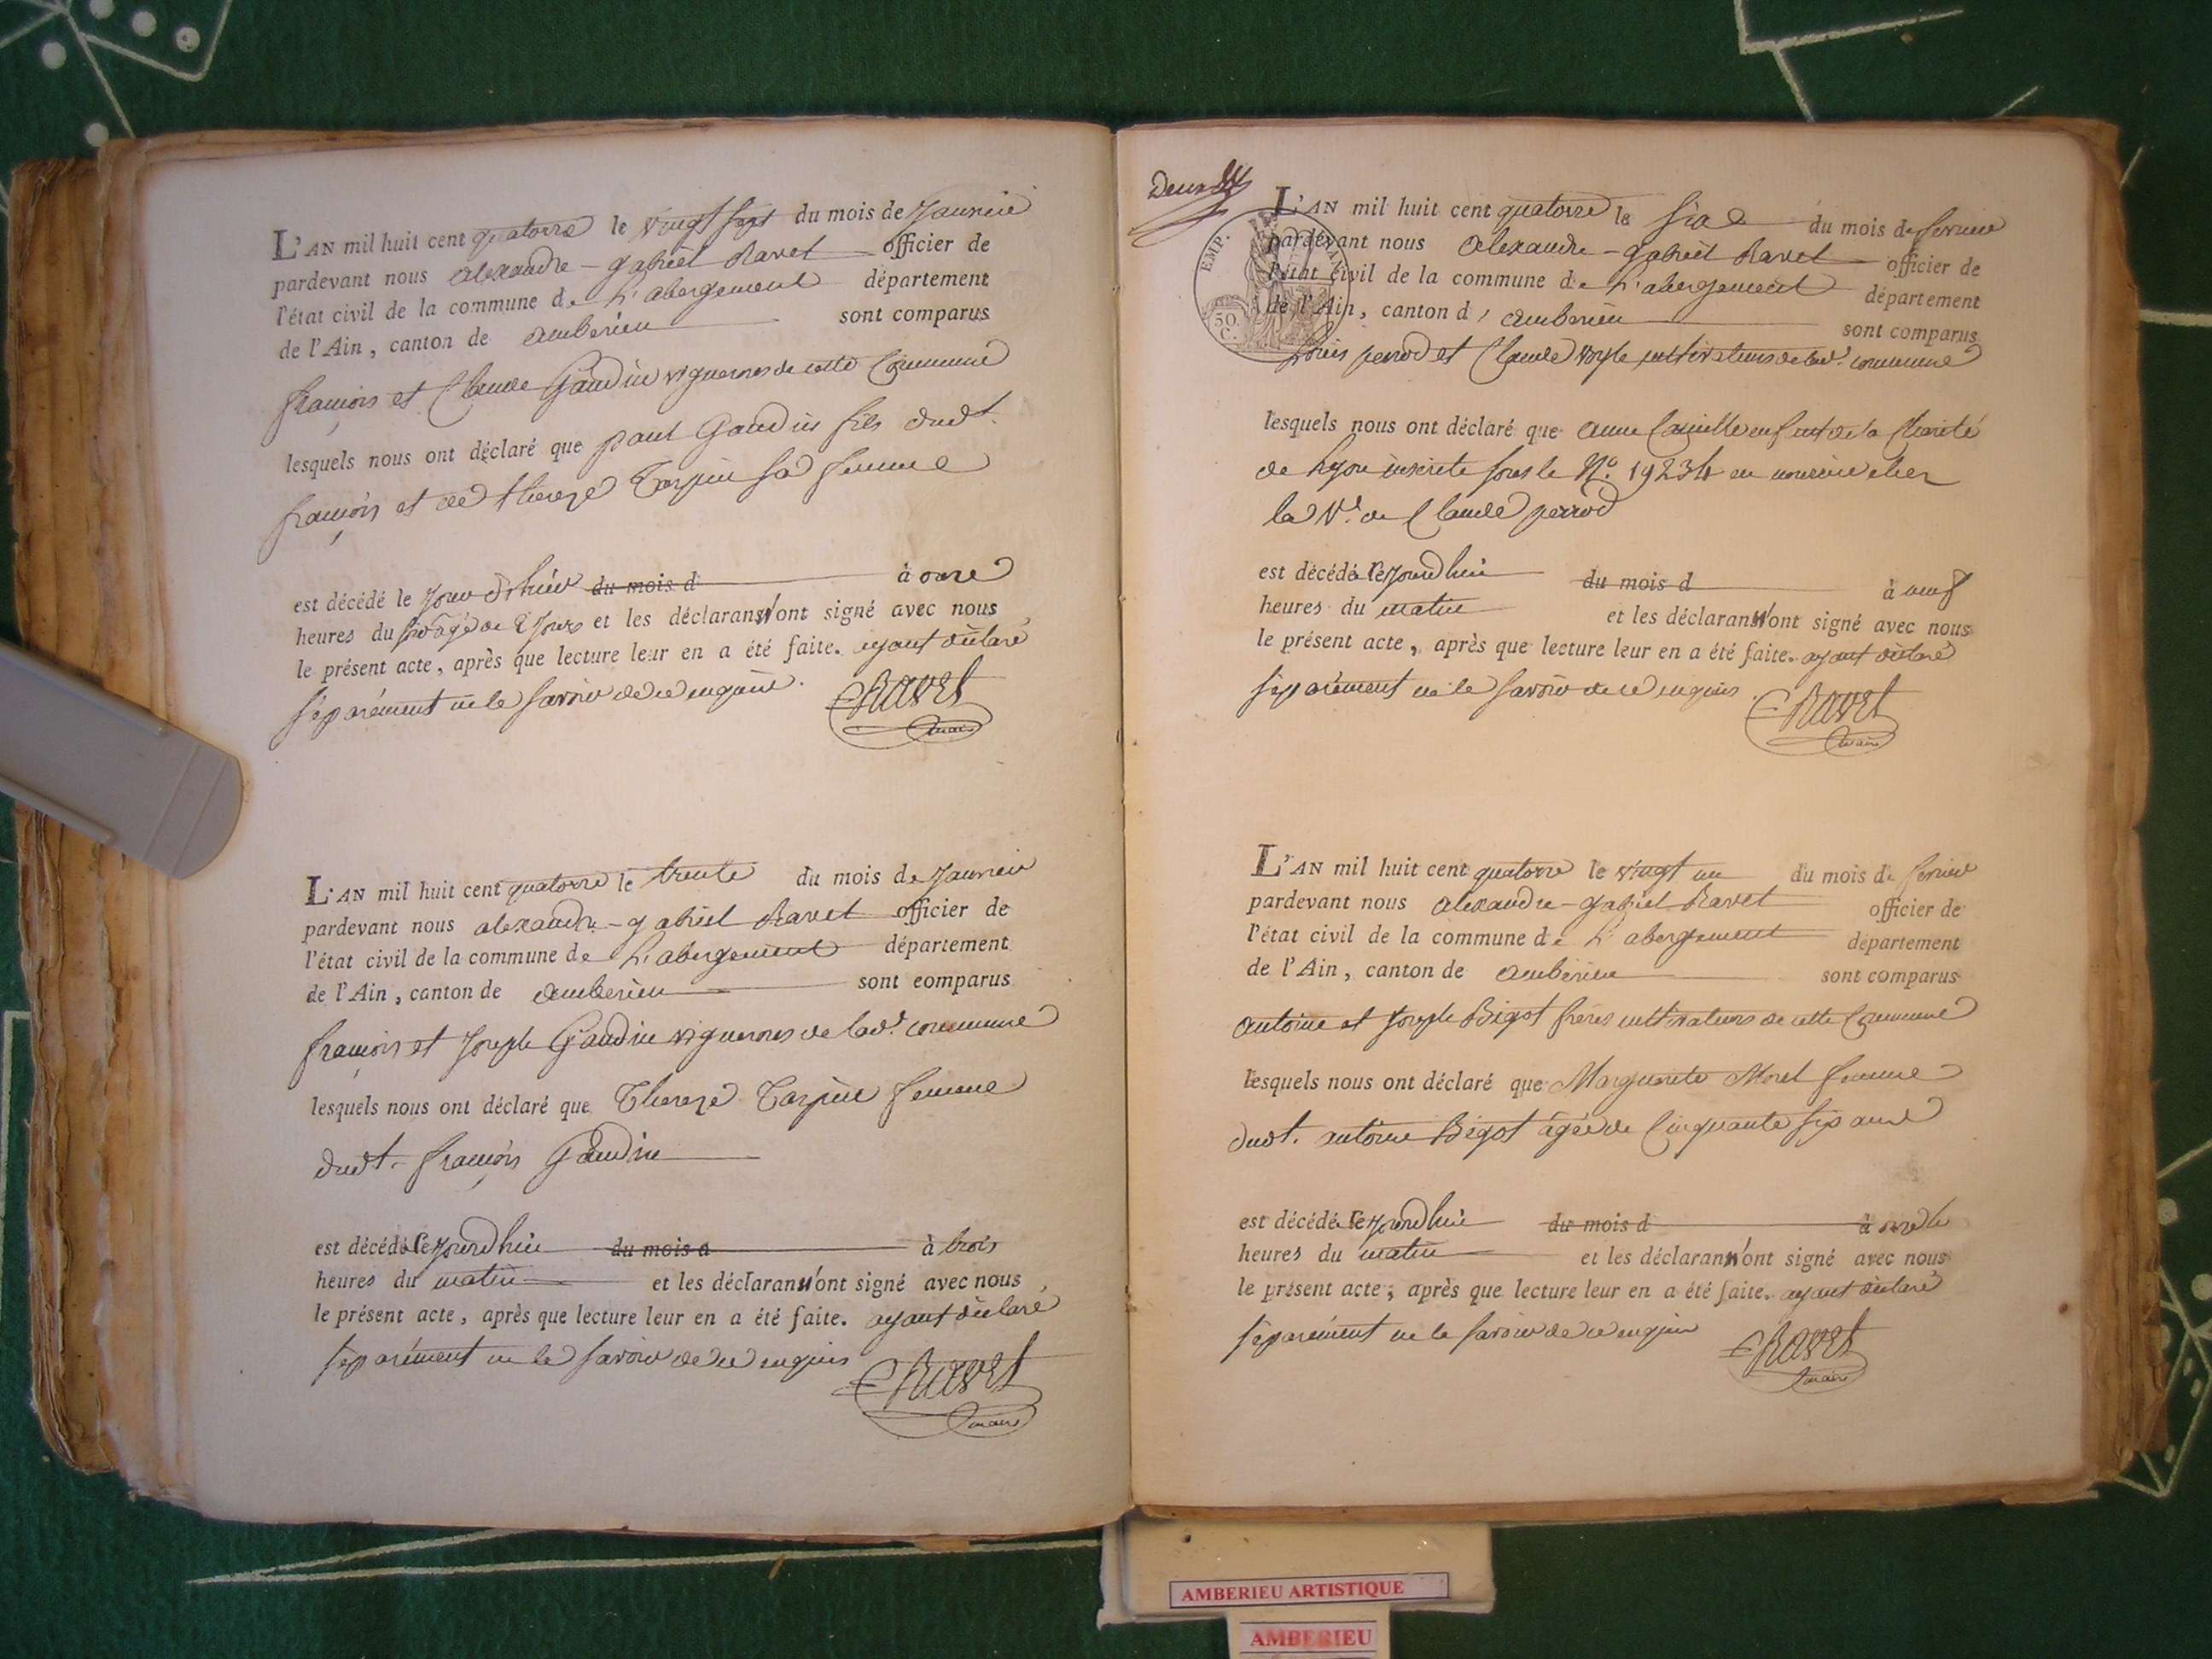 L'AN mil huit cent quatorze le vingt sept du mois de Janvier
pardevant nous alexandre - gabriel Ravet officier de
l'état civil de la commune de L'abergement département
de l'Ain, canton de amberieu sont comparus
françois et Claude Gaudin vignerons de cette Commune
lesquels nous ont déclaré que paul Gaudin fils dudt.
françois et de thereze Tarpin sa femme
est décédé le jour d'hui du mois d à onze
heures du agé de 2 jours et les déclarans n'ont signé avec nous
le présent acte, après que lecture leur en a été faite. ayant déclaré
séparément ne le savoir de ce enquis.
Ravet
maire
L'AN mil huit cent quatorze le trente du mois de Janvier
pardevant nous alexandre - gabriel Ravet officier de
l'état civil de la commune de L'abergement département
de l'Ain, canton de amberieu sont comparus
françois et Joseph Gaudin vignerons de ladt. commune
lesquels nous ont déclaré que Thereze Tarpin femme
dudt. françois Gaudin
est décédé cejourdhui du mois d à trois
heures du matin et les déclarans n'ont signé avec nous
le présent acte, après que lecture leur en a été faite. ayant déclaré
séparément ne le savoir de ce enquis
Ravet
maire
Deux
EMP.
50.
C.
L'AN mil huit cent quatorze le six du mois de fevrier
pardevant nous alexandre - gabriel Ravet officier de
l'état civil de la commune de L'abergement département
de l'Ain, canton d'amberieu sont comparus
Louis perrod et Claude cultivateurs de ladt. commune
lesquels nous ont déclaré que anne enfant de la Charité
de Lyon inscrite sous le N°. 19234 en nourrice chez
la Ve. de Claude perrod
est décédé cejourdhui du mois d à neuf
heures du matin et les déclarans n'ont signé avec nous
le présent acte, après que lecture leur en a été faite. ayant déclaré
séparément ne le savoir de ce enquis.
Ravet
maire
L'AN mil huit cent quatorze le vingt un du mois de fevrier
pardevant nous alexandre - gabriel Ravet officier de
l'état civil de la commune de L'abergement département
de l'Ain, canton de amberieu sont comparus
antoine et Joseph Bigot frères cultivateurs de cette Commune
lesquels nous ont déclaré que Marguerite Morel femme
dudt. antoine Bigot agée de Cinquante six ans
est décédé cejourdhui du mois d à onze
heures du matin et les déclarans n'ont signé avec nous
le présent acte, après que lecture leur en a été faite. ayant déclaré
séparément ne le savoir de ce enquis
Ravet
maire
AMBERIEU ARTISTIQUE
AMBERIEU